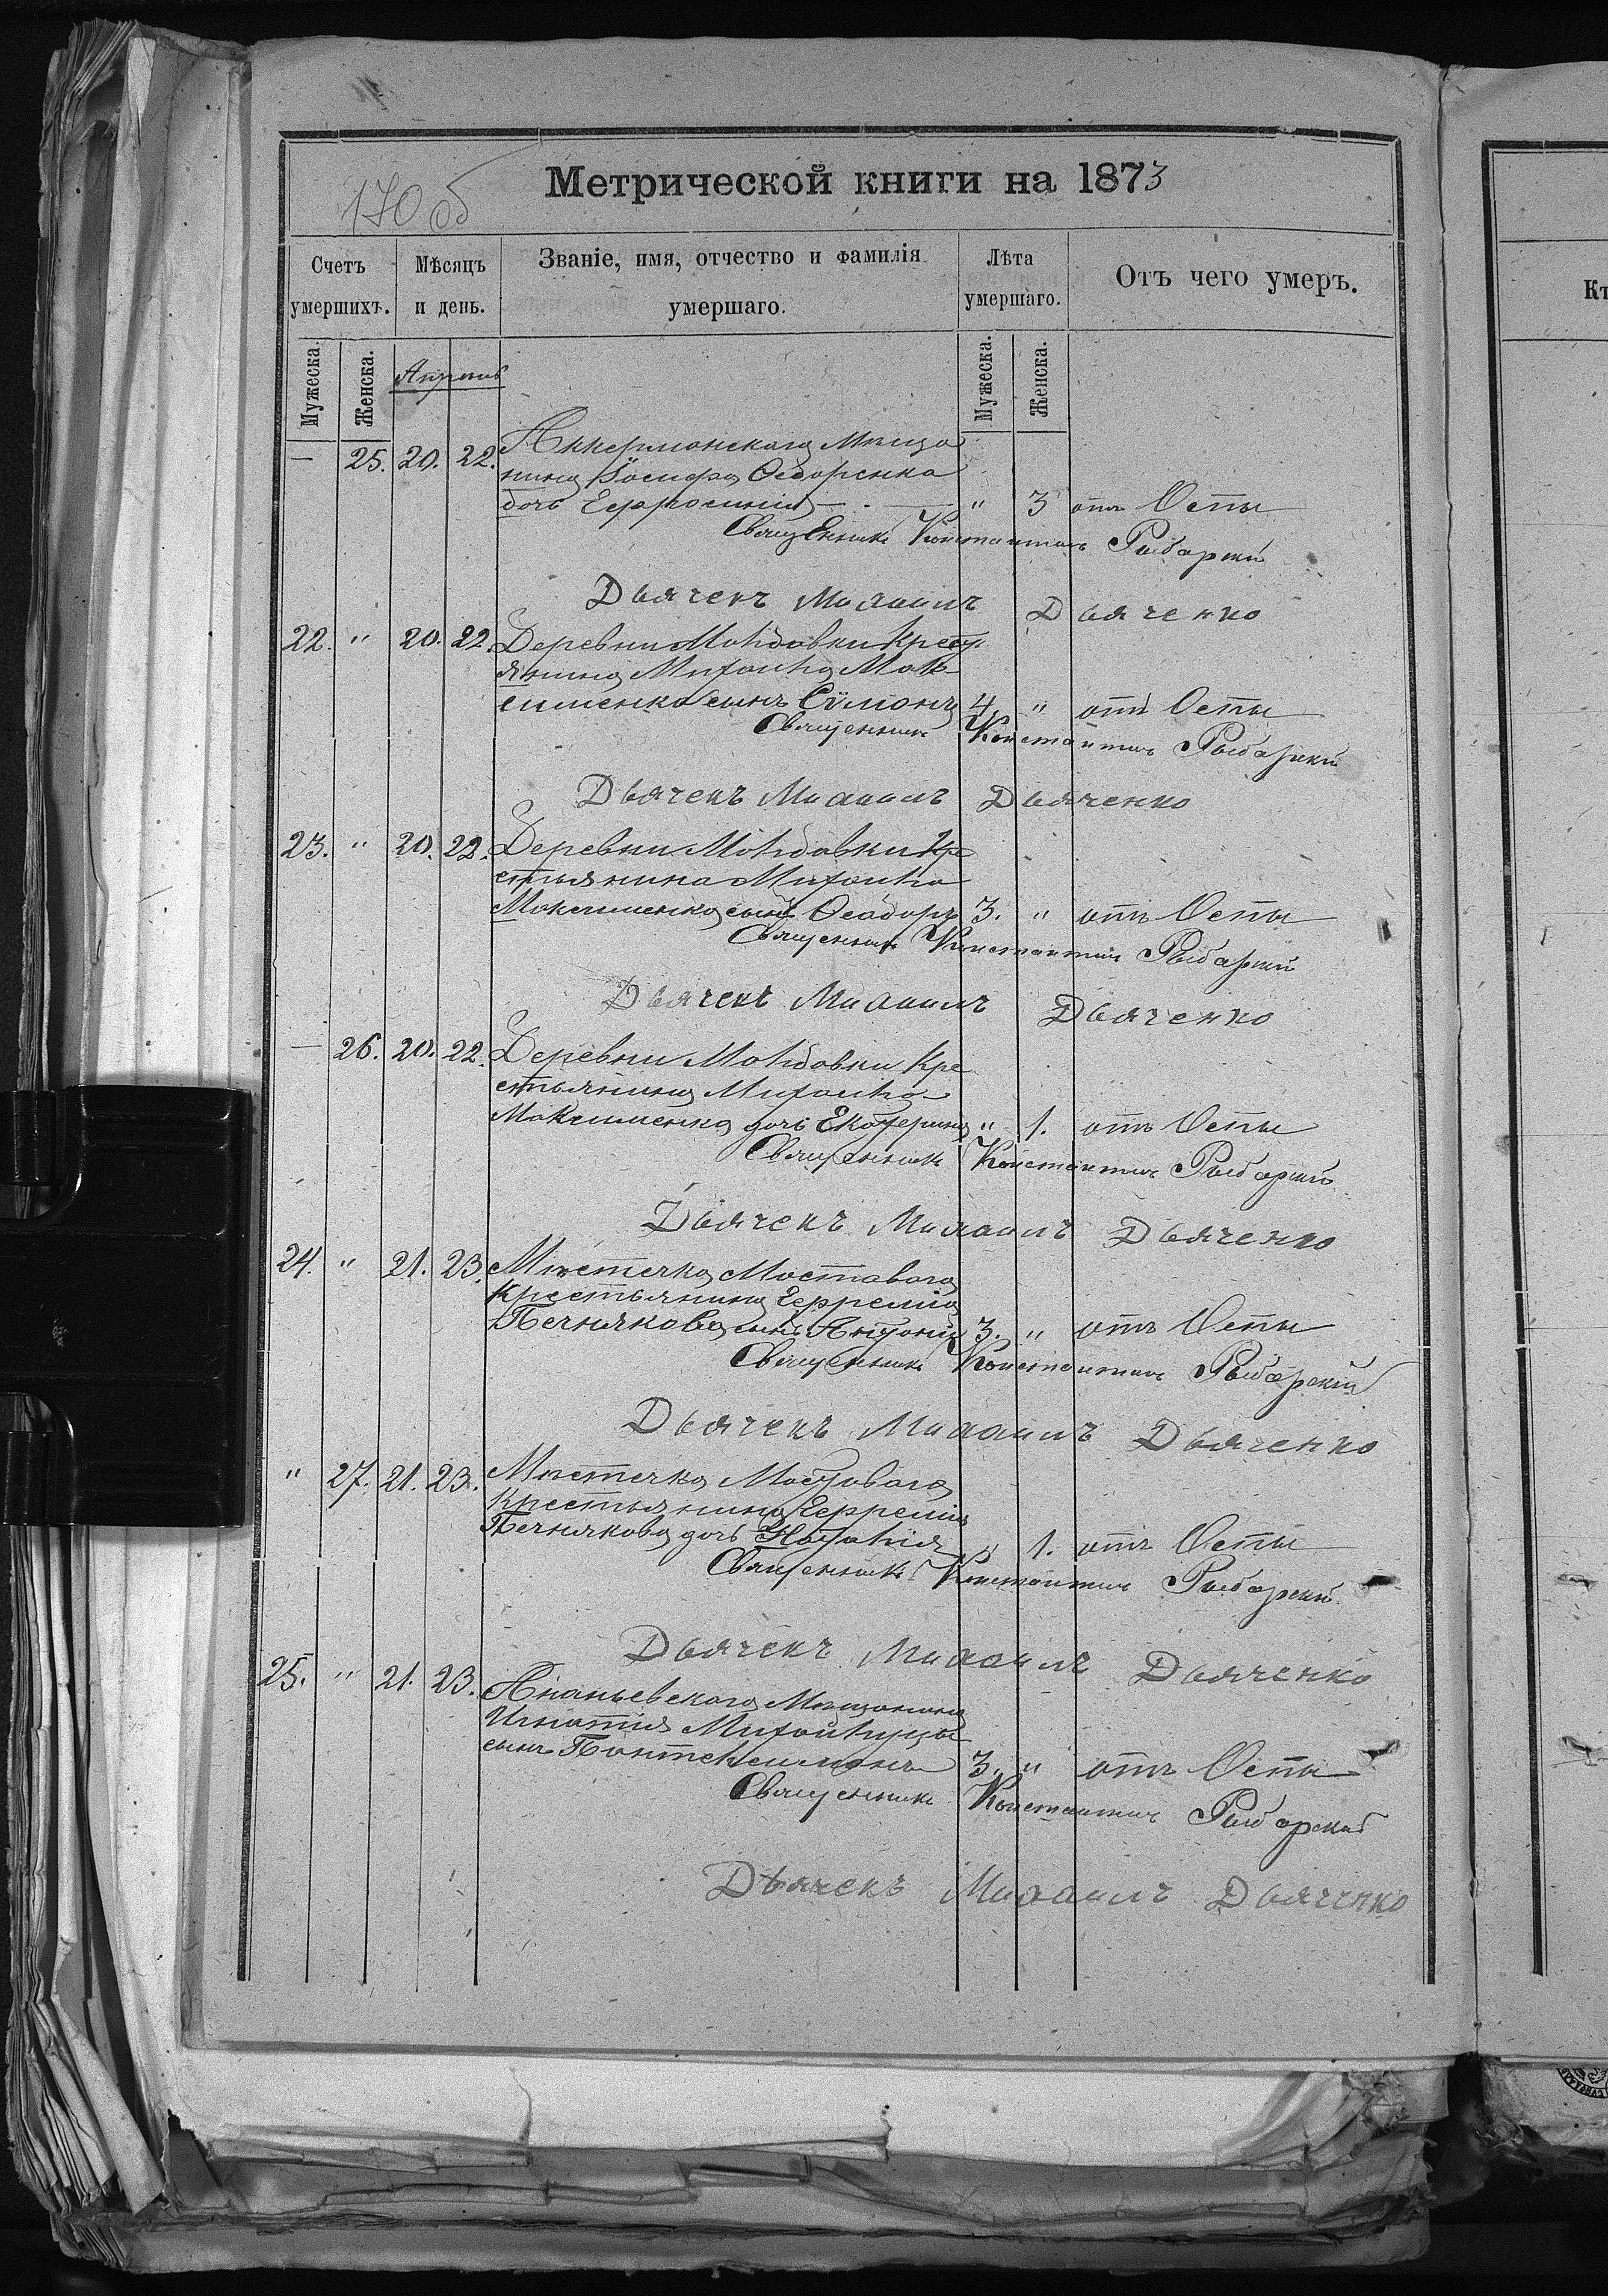 170 об
Метрической книги на 1873
Счетъ умершихъ.
Мѣсяцъ и день.
Званіе, имя, отчество и фамилія умершаго.
Лѣта умершаго.
Отъ чего умеръ.
Мужеска. Женска. Апрель Мужеска. Женска.
— 25. 20. 22. Аккерманскаго Мѣща
нина Іосифа Ѳедоренка
дочь Ефросинія — " 3 отъ Оспы
Священникъ Константинъ Рыбарскій
Дьячекъ Михаилъ Дьяченко
22. " 20. 22. Деревни Молдовки Крест
янина Михаила Мак-
сименка сынъ Симонъ 4. " отъ Оспы
Священникъ Константинъ Рыбарскій
Дьячекъ Михаилъ Дьяченко
23. " 20. 22. Деревни Молдовки Кре
стьянина Михаила
Максименка сынъ Ѳеодоръ 3. " отъ Оспы
Священникъ Константинъ Рыбарскій
Дьячекъ Михаилъ Дьяченко
— 26. 20. 22. Деревни Молдовки Кре
стьянина Михаила
Максименка дочь Екатерина " 1. отъ Оспы
Священникъ Константинъ Рыбарскій
Дьячекъ Михаилъ Дьяченко
24. " 21. 23. Мѣстечка Мостоваго
Крестьянина Ефремія
Печнякова сынъ Антоній 3. " отъ Оспы
Священникъ Константинъ Рыбарскій
Дьячекъ Михаилъ Дьяченко
" 27. 21. 23. Мѣстечка Мостоваго
Крестьянина Ефремія
Печнякова дочь Наталія " 1. отъ Оспы
Священникъ Константинъ Рыбарскій
Дьячекъ Михаилъ Дьяченко
25. " 21. 23. Ананьевскаго Мѣщанина
Игнатія Михайлуца
сынъ Пантелеимонъ 3. " отъ Оспы
Священникъ Константинъ Рыбарскій
Дьячекъ Михаилъ Дьяченко